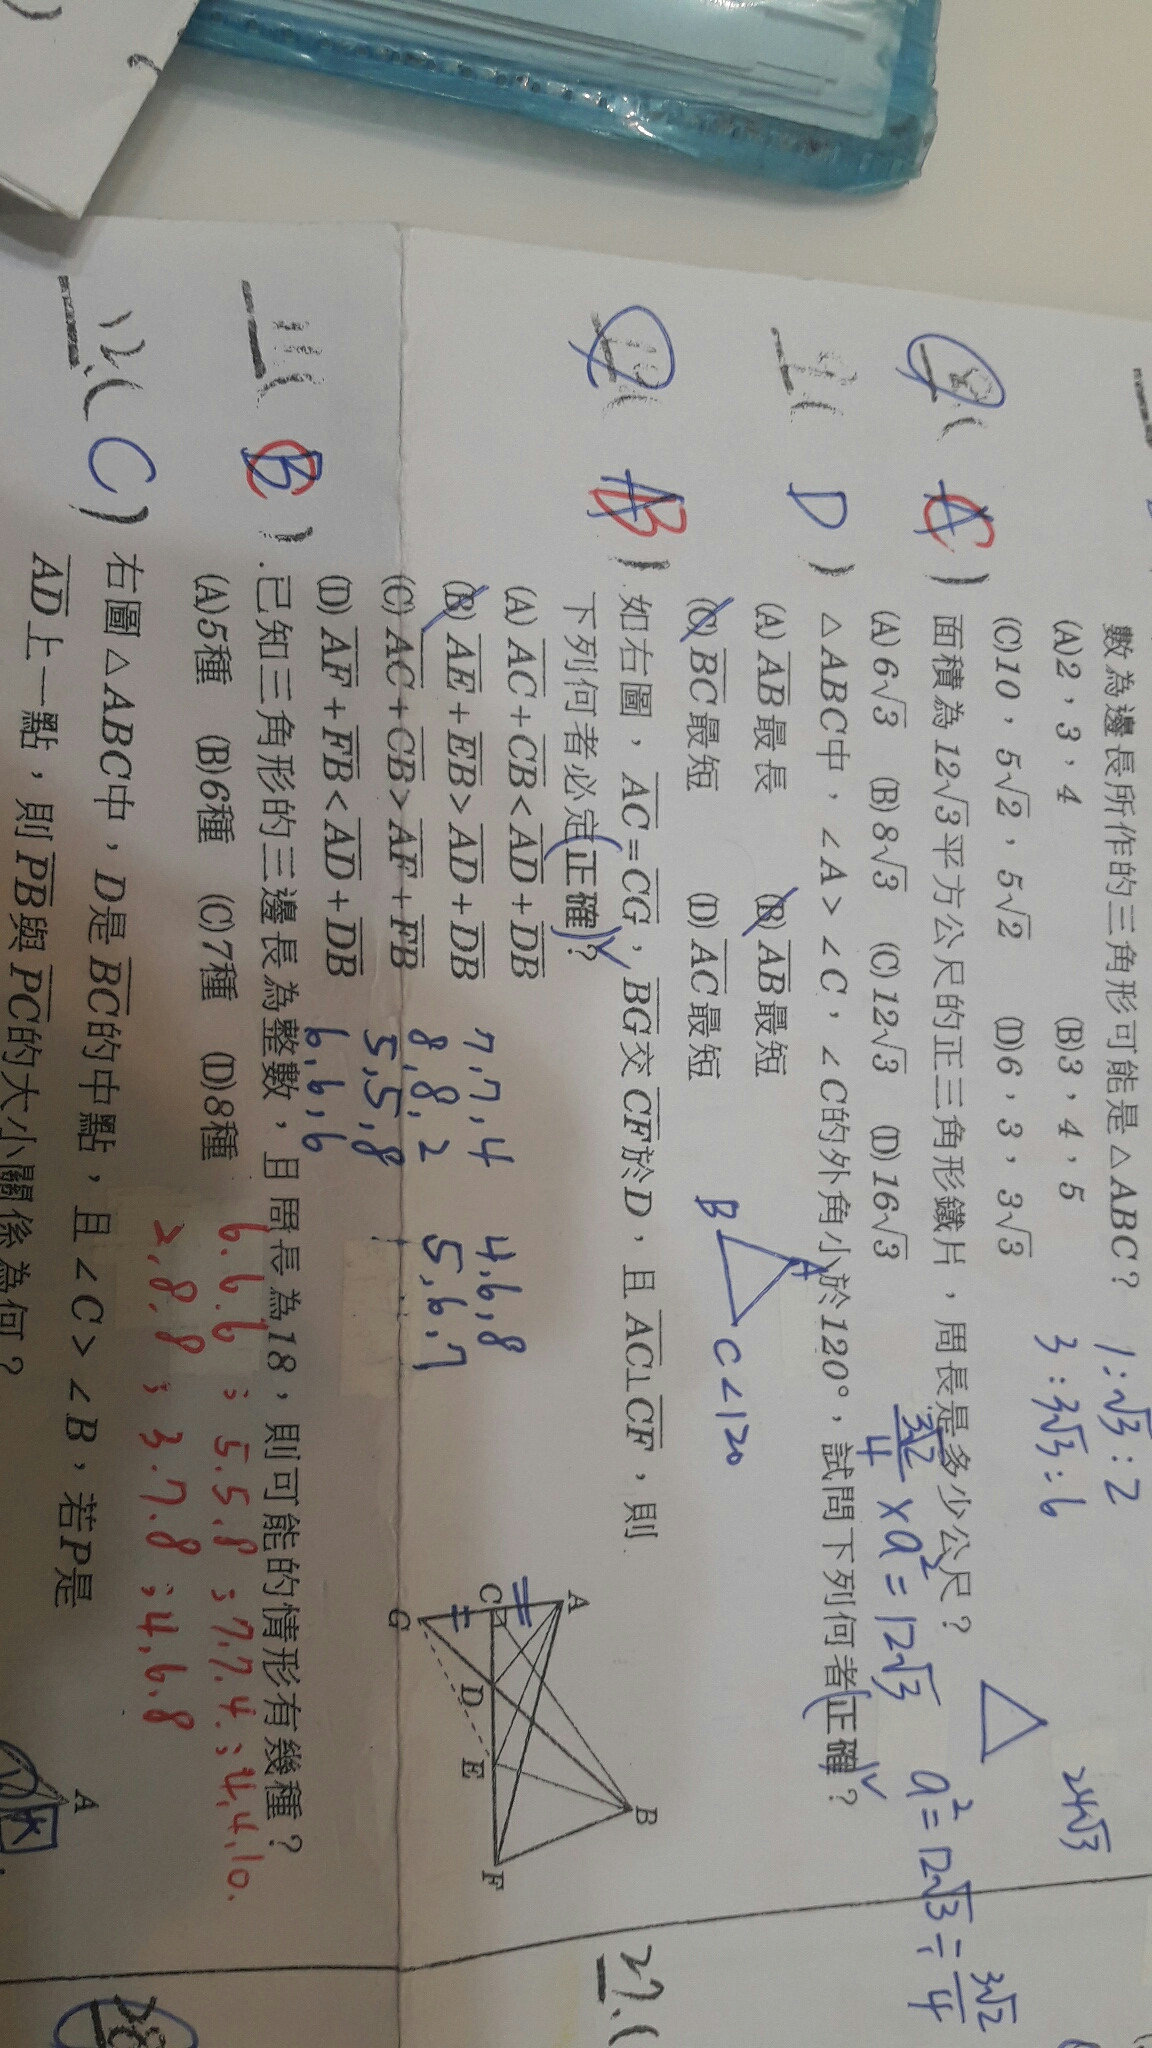 數為邊長所作的三角形可能是△ABC? 1:√3:2
(A)2,3,4 (B)3,4,5 3:3√3:6
(C)10,5√2,5√2 (D)6,3,3√3 24√3
C ) 面積為12√3平方公尺的正三角形鐵片,周長是多少公尺?
(A)6√3 (B)8√3 (C)12√3 (D)16√3
3√2/4 × a² = 12√3 a² = 12√3 ÷ 3√2/4
9.( D ) △ABC中,∠A>∠C,∠C的外角小於120°,試問下列何者正確?
(A) AB最長 (B) AB最短
(C) BC最短 (D) AC最短
B A C<120
B ) 如右圖,AC=CG,BG交CF於D,且AC⊥CF,則
下列何者必定正確?
(A) AC+CB<AD+DB
(B) AE+EB>AD+DB
(C) AC+CB>AF+FB
(D) AF+FB<AD+DB
A
B
C
D
E
F
G
7,7,4 4,6,8
8,8,2 5,6,7
5,5,8
6,6,6
11( ) 已知三角形的三邊長為整數,且周長為18,則可能的情形有幾種?
(A)5種 (B)6種 (C)7種 (D)8種
6.6.6 ; 5.5.8 ; 7.7.4 ; 4.4.10.
2,8,8 ; 3.7.8 ; 4,6,8
12.( C ) 右圖△ABC中,D是BC的中點,且∠C>∠B,若P是
AD上一點,則PB與PC的大小關係為何?
A
27.(
28